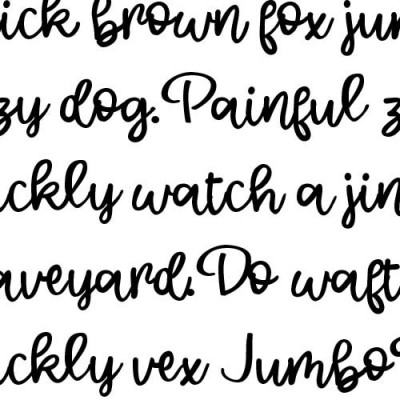 ick brown fox jum
zy dog. Painful z
ckly watch a jin
aveyard. Do waft
ckly vex Jumbo?